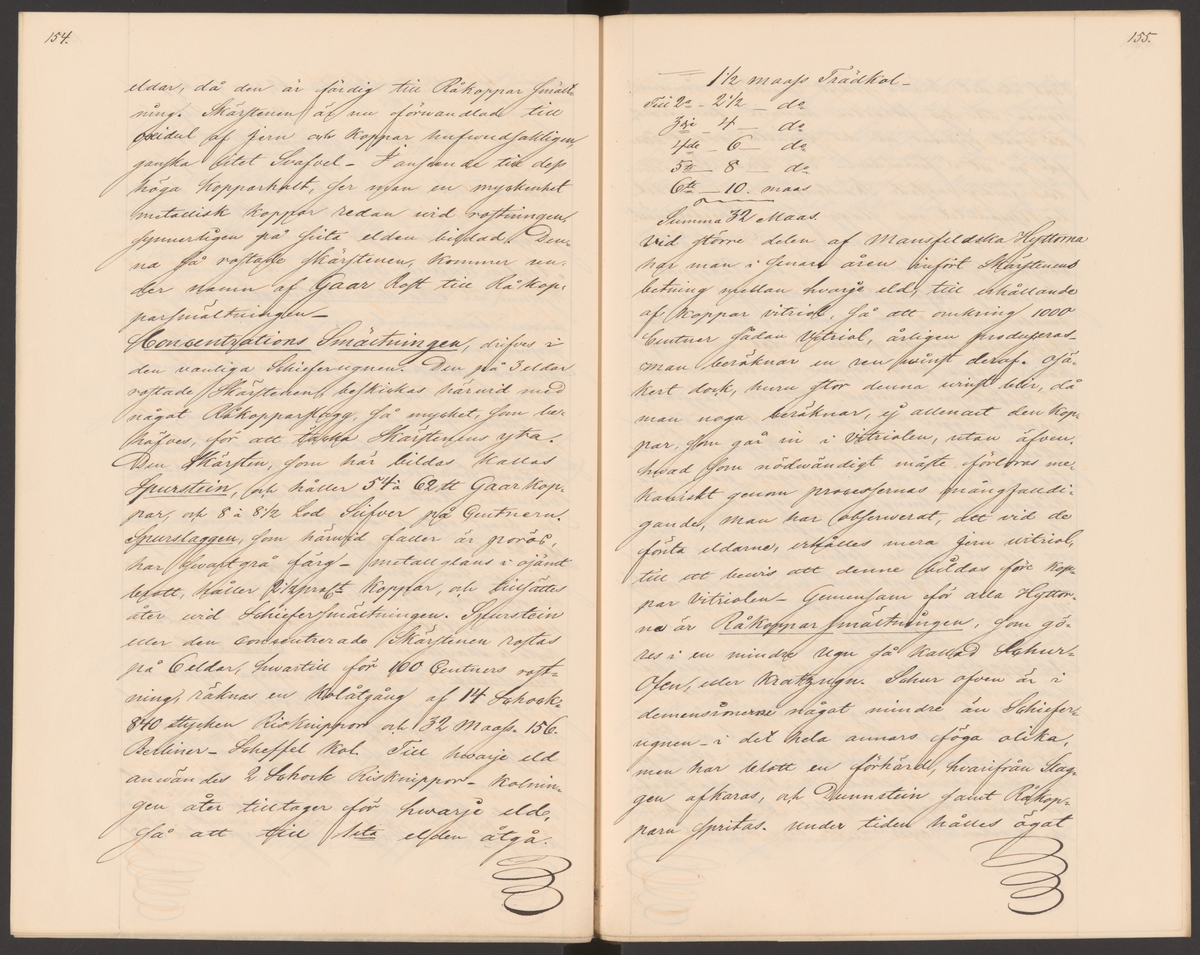 154.
eldar, då den är färdig till Råkoppar smält-
ning. Skärstenen är nu förwandlad till
oxidul af jern och Koppar hufwudsakligen
ganska litet Svafvel – I anseende till dess
höga kopparhalt, ser man en myckenhet
metallisk koppar redan wid rostningen,
synnerligen på sista elden bildad. Den-
na så rostade skärstenen, kommer un-
der namn af Gaar Rost till Råkop-
parsmältningen –
Concentrations Smältningen, drifves i
den vanliga Schieferugnen. Den på 3 eldar
rostade Skärstenen, beskickas härwid med
något Råkopparslagg, så mycket, som be-
höfves, för att täcka Skärstenens yta.
Den Skärsten, som här bildas kallas
Spurstein, och håller 54 à 62 tt Gaarkop-
par, och 8 à 8 1/2 Lod Silfver på Centnern.
Spurslaggen, som härwid faller är porös,
har swartgrå färg – metallglans i ojämt
brott, håller 2 1/2 proct Koppar, och tillsättes
åter wid Schiefersmältningen. Spurstein
eller den concentrerade Skärstenen rostas
på 6 eldar, hwartill för 100 Centners rost-
ning, räknas en kolåtgång af 14 Schock
840 stycken Risknippor och 32 Maass. 156.
Berliner – Scheffel kol. Till hwarje eld
anwändes 2 Schock Risknippor – kolnin-
gen åter tilltager för hwarje eld,
så att till 1sta elden åtgå.
155.
1 1/2 maass Trädkol –
Till 2a – 2 1/2 – do
3dje – 4 – do
4de – 6 – do
5te – 8 – do
6tte – 10. maas
Summa 32 Maas.
Vid större delen af Mansfeldska Hyttorna
har man i senare åren infört Skärstenens
betning mellan hvarje eld, till erhållande
af Koppar vitriol, så att omkring 1000
Centner sådan Vitriol, årligen produceras
man beräknar en ren winst deraf. Osä-
kert dock, huru stor denna winst blir, då
man noga beräknar, ej allenast den kop-
par, som går in i Vitriolen, utan äfven,
hwad som nödwändigt måste förloras me-
kaniskt genom processernas mångfaldi-
gande, man har observerat, att vid de
första eldarne, erhålles mera jern vitriol,
till ett bewis att denne bildas före kop-
par vitriolen – Gemensam för alla Hyttor-
na är Råkopparsmältningen, som gö-
res i en mindre ugn så kallad Schur-
Ofen, eller Krattzugn. Schur ofven är i
demensionerne något mindre än Schiefer-
ugnen – i det hela annars föga olika,
men har blott en förhärd, hvarifrån Slag-
gen afkaras, och Dunnstein samt Råkop-
parn spritas. Under tiden hålles ögat